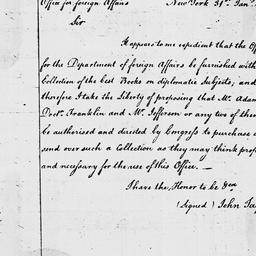 Office for foreign Affairs New York 31st. Jan.
Sir
It appears to me expedient that the Of
for the Department of foreign Affairs be furnished with
Collection of the best Books on diplomatic Subjects; and
therefore I take the Liberty of proposing that Mr. Adam
Doctr. Franklin and Mr. Jefferson or any two of them
be authorised and directed by Congress to purchase a
send over such a Collection as they may think prop
and necessary for the use of this Office. —
I have the Honor to be &ca
(Signed) John Jay